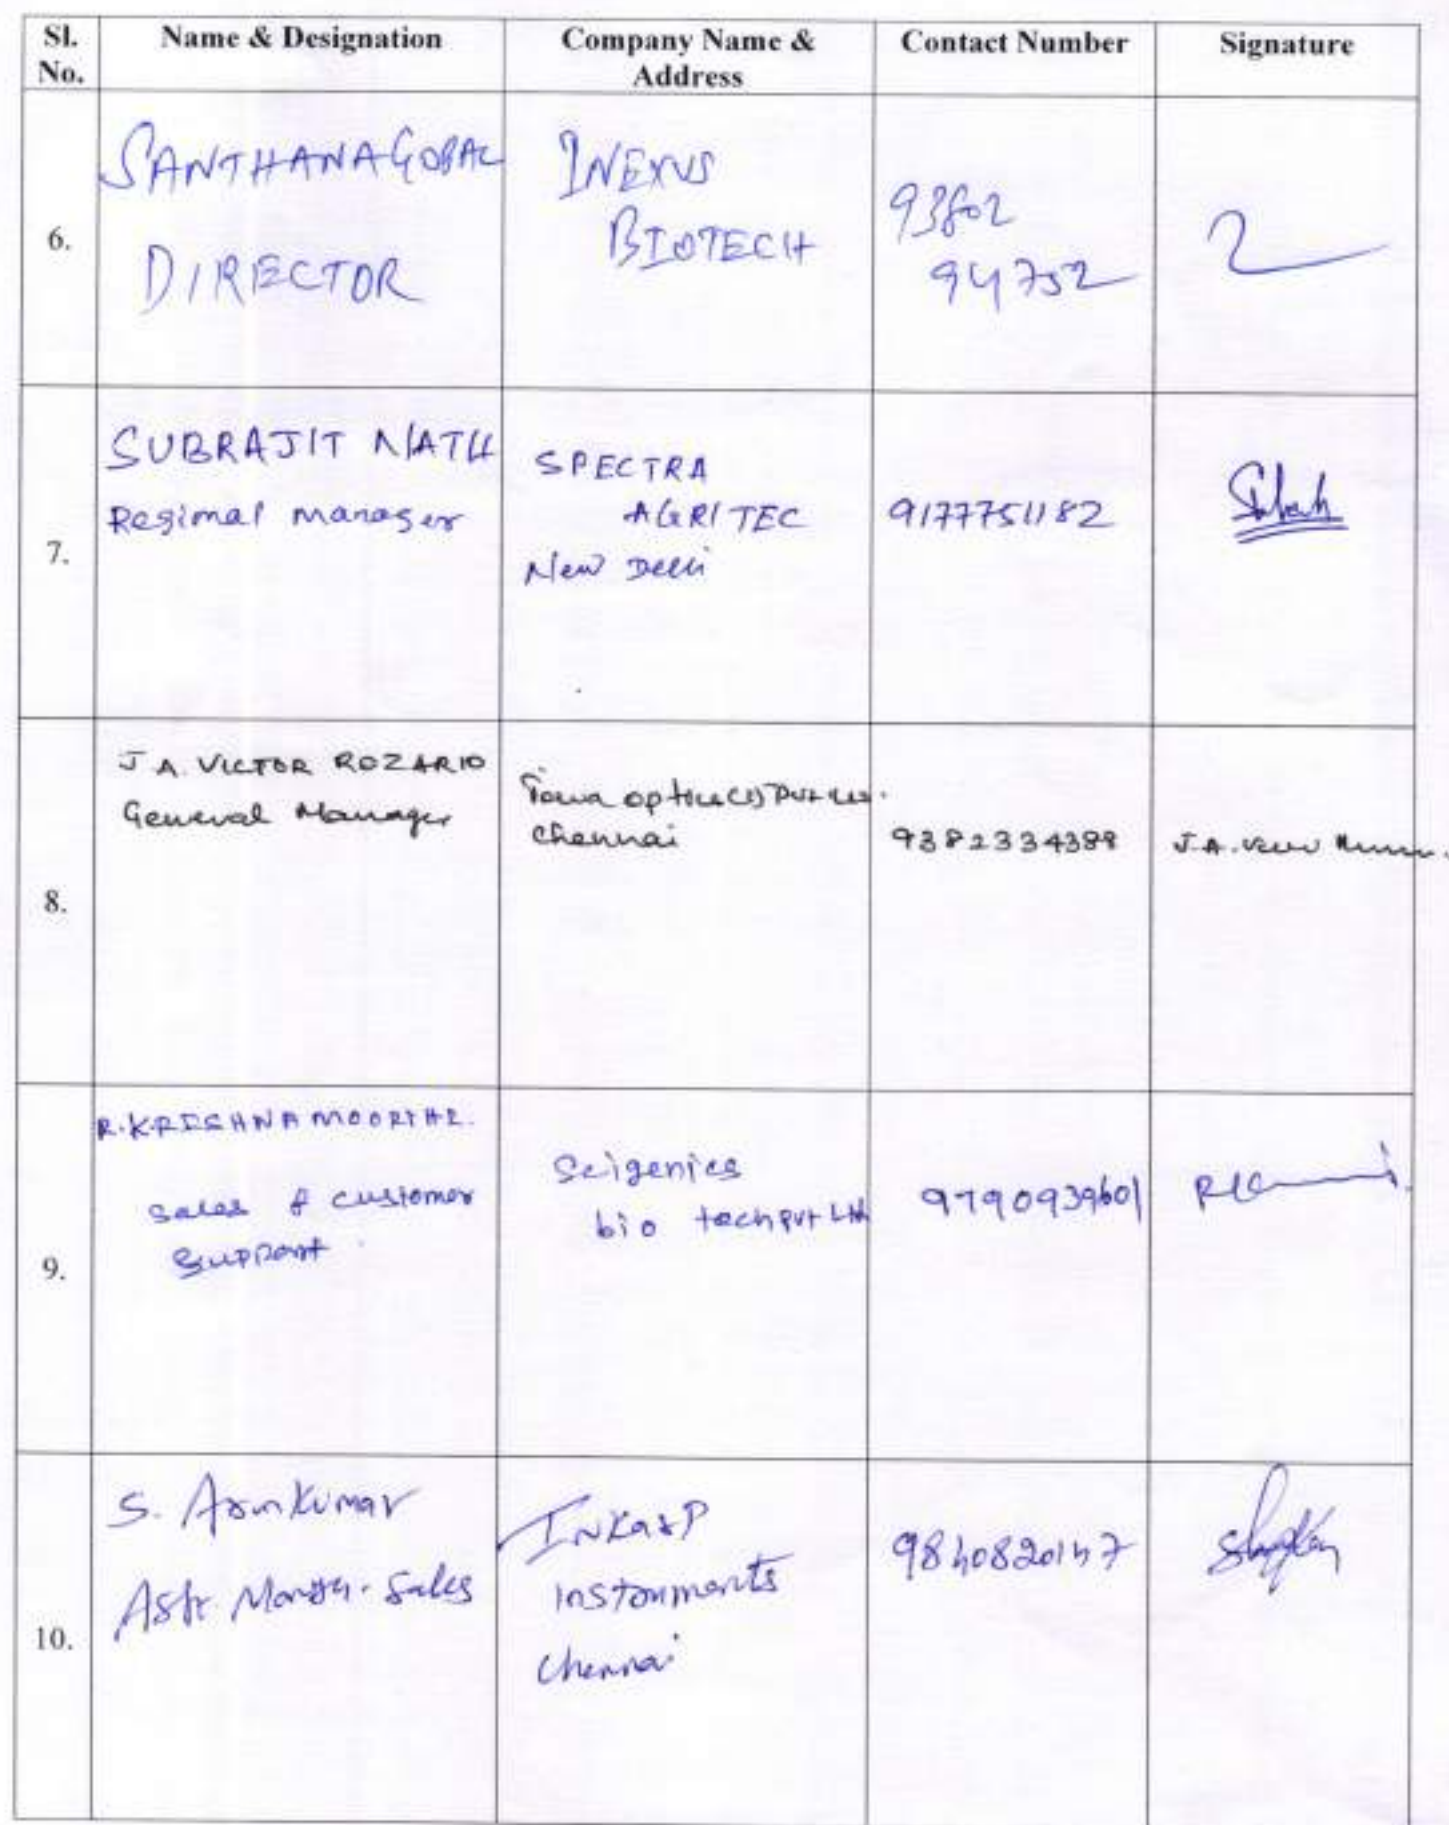 Sl. No.
Name & Designation
Company Name & Address
Contact Number
Signature
6.
SANTHANAGOPAL
DIRECTOR
INEXUS
BIOTECH
93802
94752
7.
SUBRAJIT NATH
Regional manager
SPECTRA
AGRITEC
New Delhi
9177751182
8.
J A. VICTOR ROZARIO
General Manager
Towa optics (I) Pvt Ltd.
Chennai
9382334388
J.A.
9.
R.KRISHNAMOORTHI.
Sales & customer
Support
Scigenics
bio tech pvt Ltd
9790939601
10.
S. Arunkumar
Asst Manager. Sales
Inkarp
instruments
Chennai
9840820147